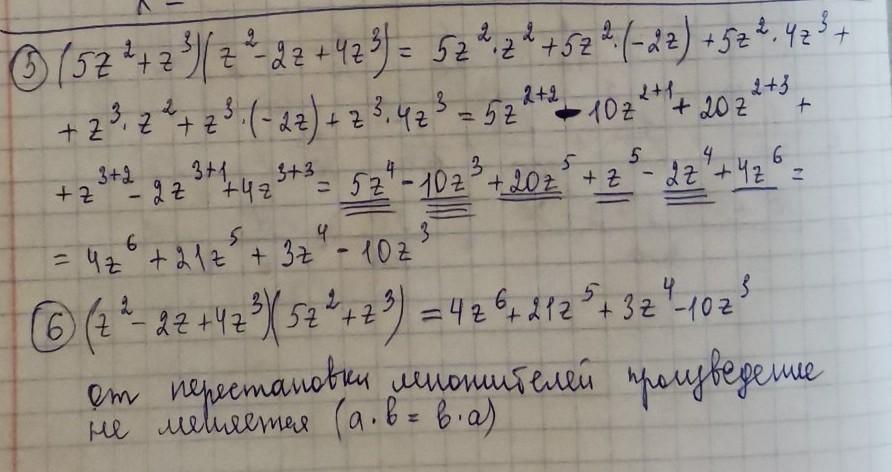 ⑤ (5z² + z³)(z² - 2z + 4z³) = 5z²·z² + 5z²·(-2z) + 5z²·4z³ +
+ z³·z² + z³·(-2z) + z³·4z³ = 5z²⁺² - 10z²⁺¹ + 20z²⁺³ +
+ z³⁺² - 2z³⁺¹ + 4z³⁺³ = 5z⁴ - 10z³ + 20z⁵ + z⁵ - 2z⁴ + 4z⁶ =
= 4z⁶ + 21z⁵ + 3z⁴ - 10z³
⑥ (z² - 2z + 4z³)(5z² + z³) = 4z⁶ + 21z⁵ + 3z⁴ - 10z³
от перестановки множителей произведение
не меняется (a·b = b·a)